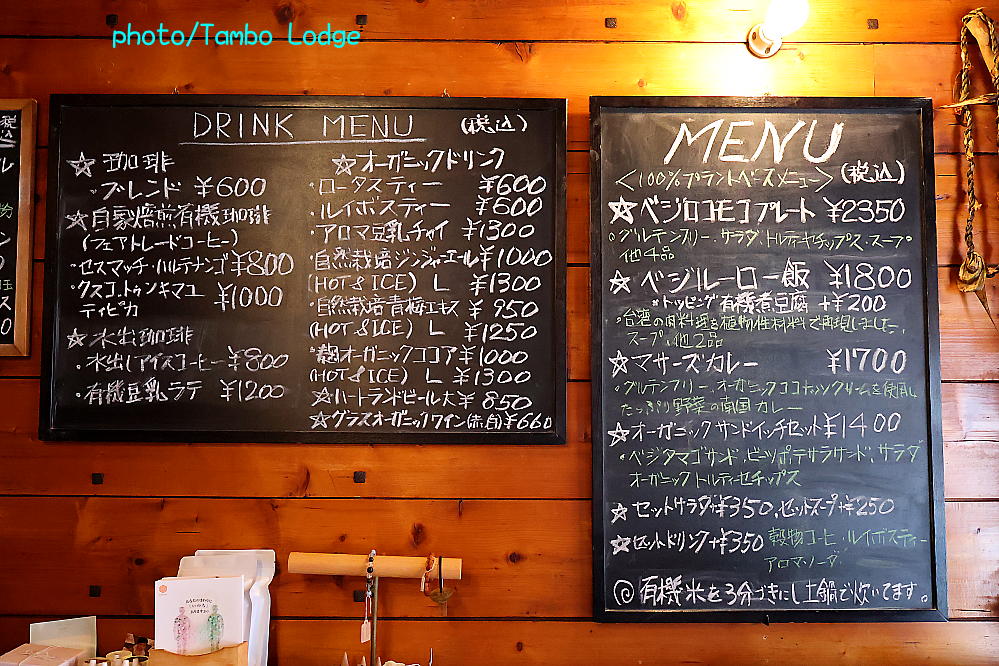 photo/Tambo Lodge
DRINK MENU (税込)
☆珈琲
・ブレンド ¥600
☆自家焙煎有機珈琲
(フェアトレードコーヒー)
・セスマッチ・ハルテナンゴ ¥800
・クスコ、トゥンキマユ
ティピカ ¥1000
☆水出珈琲
・水出しアイスコーヒー ¥800
・有機豆乳ラテ ¥1200
☆オーガニックドリンク
・ロータスティー ¥600
・ルイボスティー ¥600
・アロマ豆乳チャイ ¥1300
・自然栽培ジンジャーエール ¥1000
(HOT & ICE) L ¥1300
・自然栽培青梅エキス ¥950
(HOT & ICE) L ¥1250
・麹オーガニックココア ¥1000
(HOT & ICE) L ¥1300
☆ハートランドビール大 ¥850
☆グラスオーガニックワイン(赤、白) ¥660
MENU
<100%プラントベースメニュー> (税込)
☆ベジロコモコプレート ¥2350
・グルテンフリー・サラダ、トルティヤチップス・スープ
他4品
☆ベジルーロー飯 ¥1800
*トッピング有機煮豆腐 +¥200
・台湾の肉料理を植物性材料で再現しました。
スープ、他2品
☆マサーズカレー ¥1700
・グルテンフリー、オーガニックココナッツクリームを使用し
たっぷり野菜の南国カレー
☆オーガニックサンドイッチセット ¥1400
・ベジタマゴサンド、ビーツポテサラサンド、サラダ
オーガニックトルティーヤチップス
☆セットサラダ+¥350、セットスープ+¥250
☆セットドリンク+¥350 穀物コーヒー・ルイボスティー
アロマソーダ
◎有機米を3分づきにし土鍋で炊いてます。